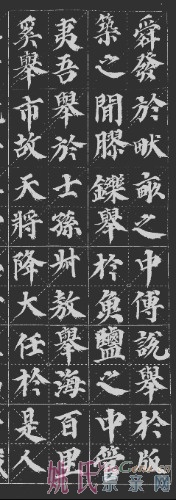 舜發於畎畝之中傅說舉於版
築之間膠鑠舉於魚鹽之中管
夷吾舉於士孫叔敖舉海百里
奚舉市故天將降大任於是人
姚氏宗亲网